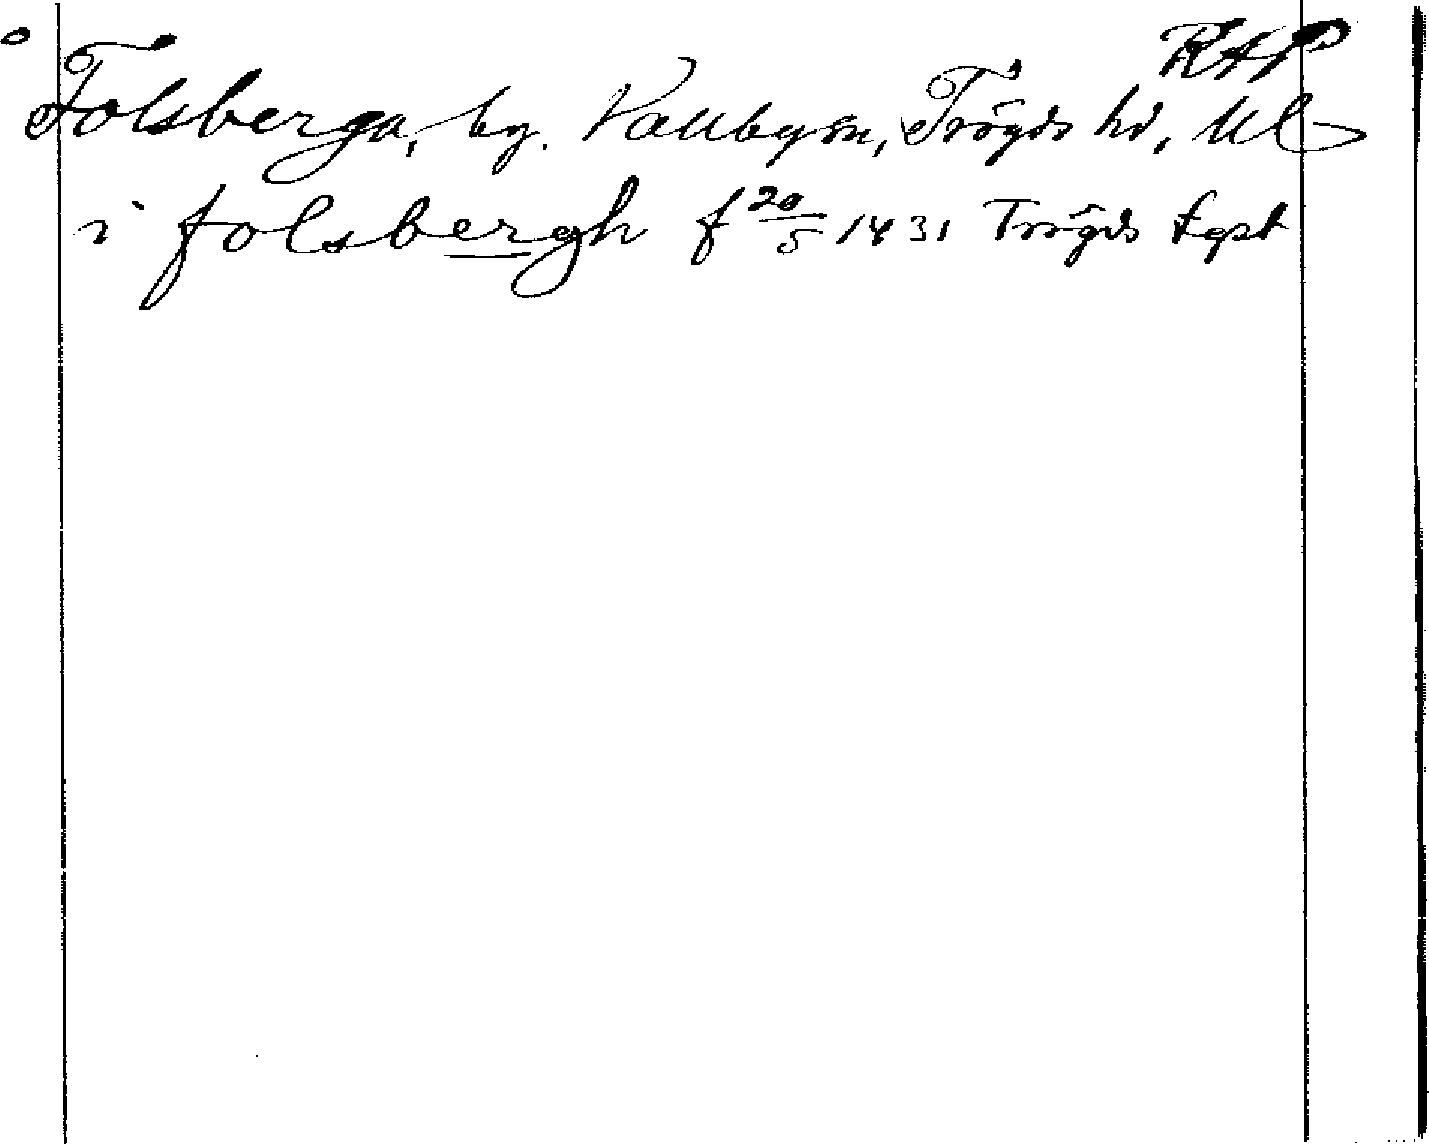 RAP
Folsberga, by. Vallbysn, Trögds hd, Ul
i folsbergh f 20/5 1431 Trögds Fgpt